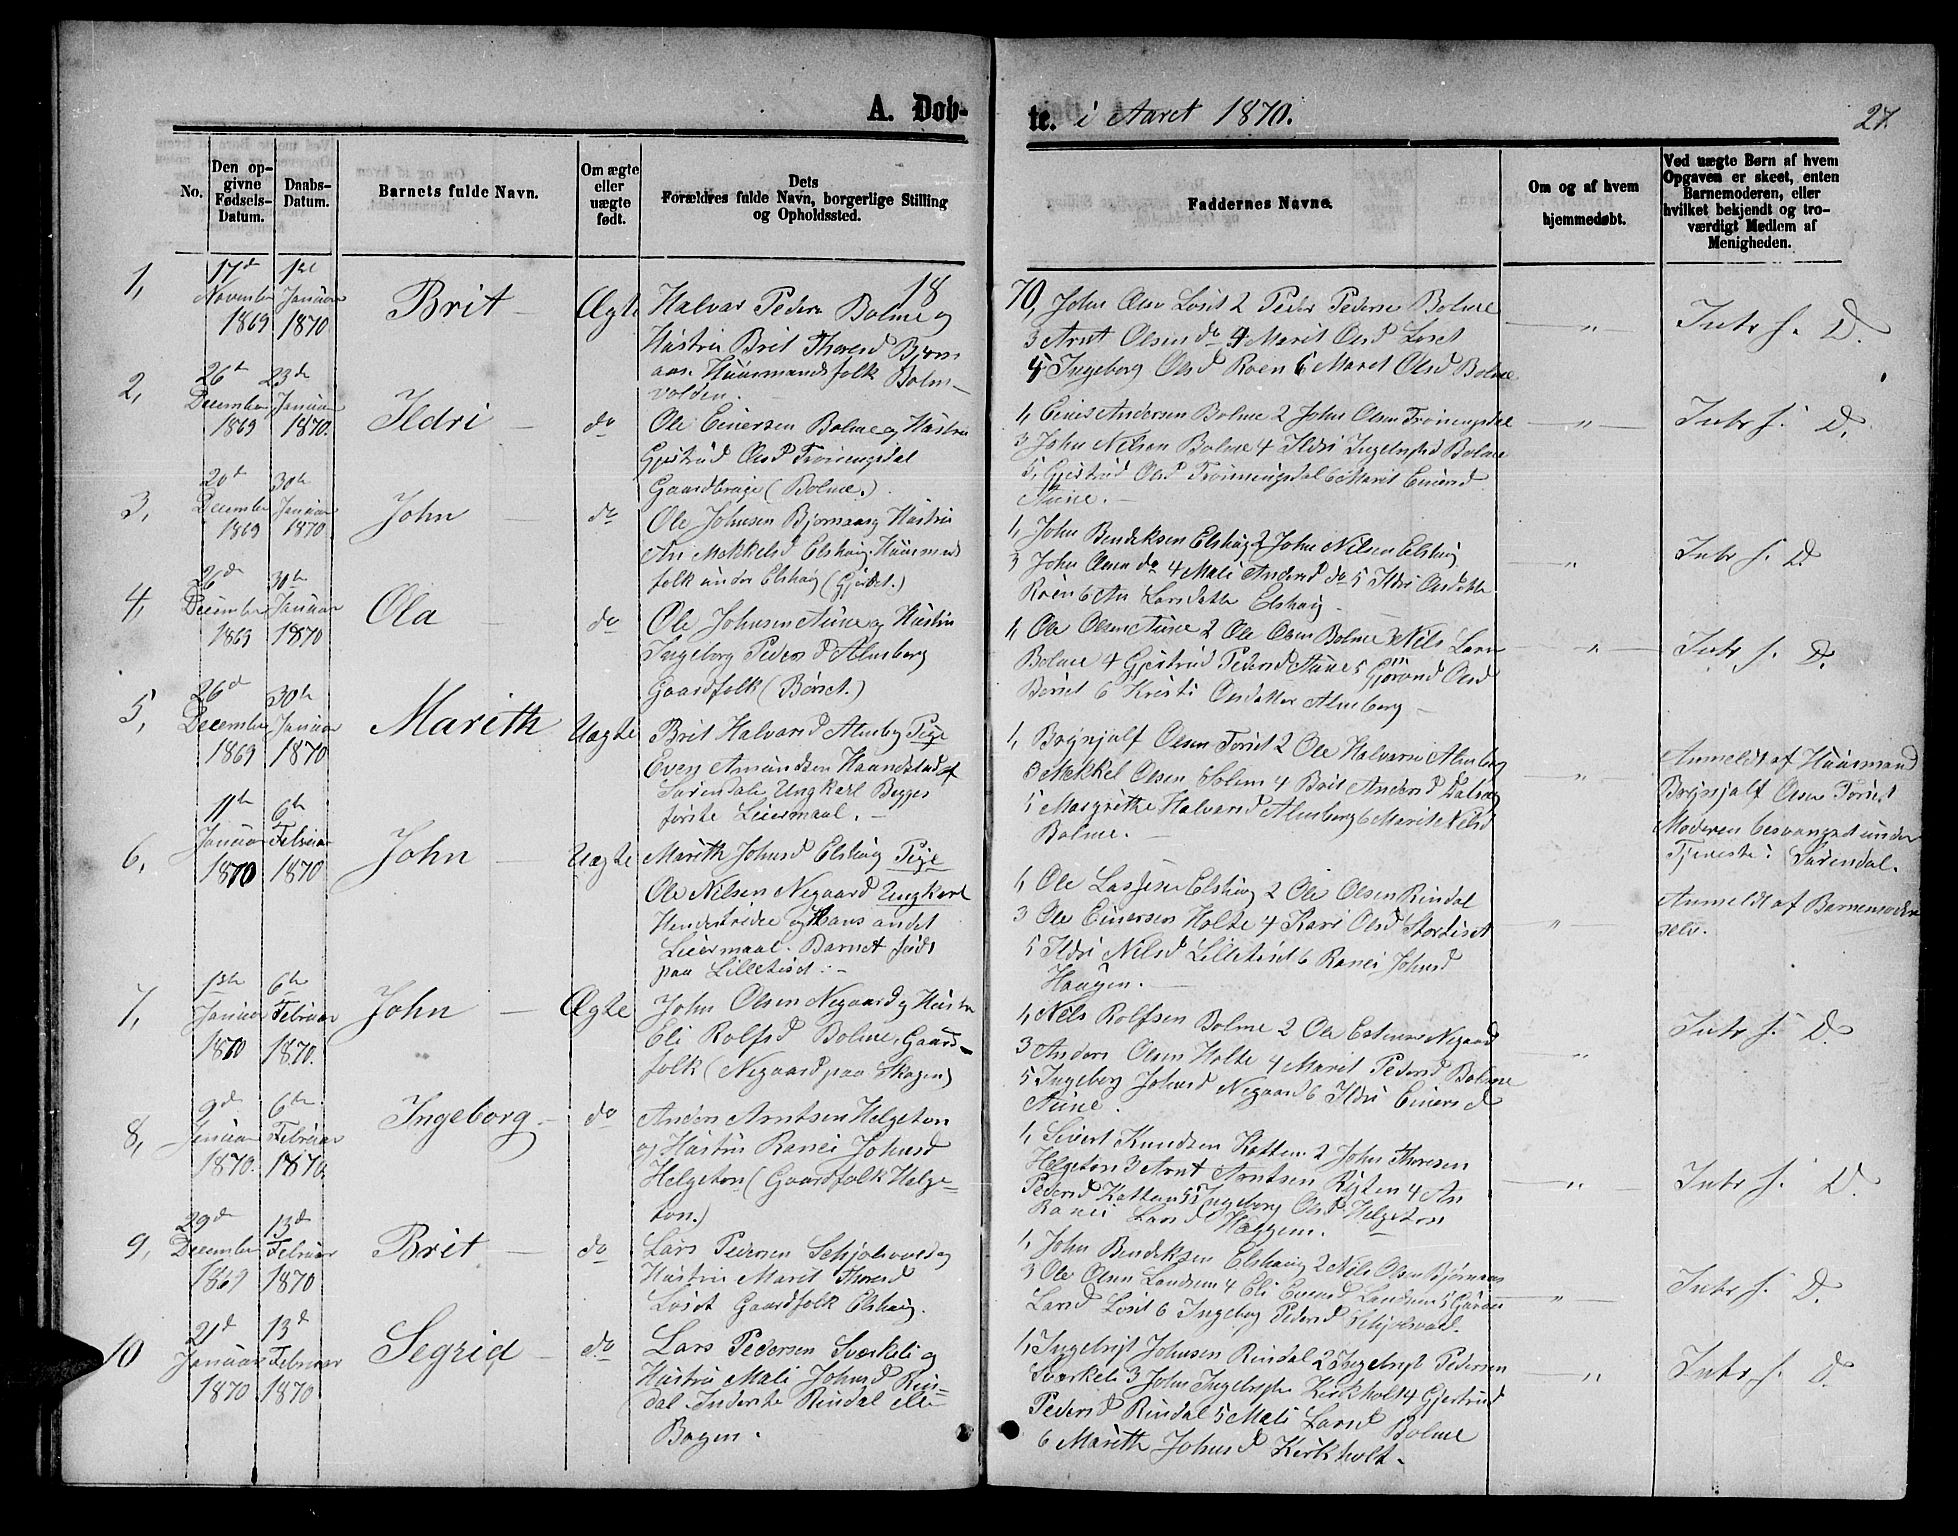 A. Døb-
te. i Aaret 1870.
27.
No.
Den op-
givne
Fødsels-
Datum.
Daabs-
Datum.
Barnets fulde Navn.
Om ægte
eller
uægte
født.
Dets
Forældres fulde Navn, borgerlige Stilling
og Opholdssted.
Faddernes Navne.
Om og af hvem
hjemmedøbt.
Ved uægte Børn af hvem
Opgaven er skeet, enten
Barnemoderen, eller
hvilket bekjendt og tro-
værdigt Medlem af
Menigheden.
18
70,
1,
17d
November
1869
1ste
Januar
1870
Brit
Ægte
Halvar Peders Bolme og
Hustru Brit Thoresd Bjørn
aas. Huusmandsfolk Bolm-
volden.
John Olsen Løset 2 Peder Pedersen Bolme
3 Arnt Olsen do 4 Marit Olsd Løset
5 Ingeborg Olsd Roen 6 Maret Olsd Bolme
"
Intr f. D.
2,
26de
December
1869
23de
Januar
1870.
Ildri
do
Ole Einersen Bolme og Hustru
Gjertrud Olsd Trønningsdal
Gaardbruge (Bolme.)
1, Einer Andersen Bolme 2 John Olsen Trønningsdal
3 John Nilsen Bolme 4 Ildri Ingebrigtsd Bolme
5, Gjertrud Olsd Trønningsdal 6 Marit Einersd
Aune.
"
Intr f. D.
3,
20de
December
1869
30te
Januar
1870
John
do
Ole Johnsen Bjørnaas og Hustru
An Mekkelsd Elshaug. Huusmands
folk under Elshaug (Gjerdet.)
1, John Bendiksen Elshaug 2 John Nilsen Elshaug
3 John Olsen do 4 Mali Andersd do 5 Ildri Olsdatte
Roen 6 An Larsdatte Elshaug
"
Intr f. D
4,
26de
December
1869
30te
Januar
1870
Ola
do
Ole Johnsen Aune og Hustru
Ingeborg Pedersd Almberg
Gaardfolk (Børset.)
1, Ole Olsen Aune 2 Ole Olsen Bolme 3 Nils Larsen
Bolme 4 Gjertrud Pedersd Aune 5 Gjørand Olsd
Børset 6 Kristi Olsdatter Almberg
"
Intr f. D.
5,
26d
December
1869
30te
Januar
1870
Marith
Uægte
Brit Halvarsd Almberg Pige
Even Amundsen Haandstad af
Surendale Ungkarl Begges
første Leiermaal.
1, Brynjulf Olsen Tørset 2 Ole Halvarsen Almberg
3 Mekkel Olsen 4 Brit Andersd
5 Margrethe Halvarsd Almberg 6 Marit Nilsd
Bolme.
"
Anmeldt af Huusmand
Brynjulf Olsen Tørset
Moderen besvangret under
Tjeneste i Surendal.
6,
11te
Januar
1870
6te
Februar
1870
John
Uægte
Marith Johnsd Elshaug Pige
Ole Nilsen Negaard Ungkarl
Hendes tredie og Hans andet
Leiermaal. Barnet født
paa Lilletiset.
1, Ole Lassesen Elshaug 2 Ole Olsen Rindal
3 Ole Einersen Holte 4 Kari Olsd Stortiset
5 Ildri Nilsd Lilletiset 6 Ranei Johnsd
Haugen.
"
Anmeldt af Barnemoderen
selv.
7,
Januar
1870
6te
Februar
1870.
John
Ægte
John Olsen Negaard og Hustru
Eli Rolfsd Bolme, Gaard-
folk (Negaard paa Skogen)
1, Nels Rolfsen Bolme 2 Ole Estensen Negaard
3 Anders Olsen Holte 4 Marit Pedersd Bolme
5 Ingeborg Johnsd Negaard 6 Ildri Einersd
Aune.
"
Intr f. D.
8,
2de
Januar
1870.
6te
Februar
1870.
Ingeborg
do
Anders Arntsen Helgeton
og Hustru Ranei Johnsd
Helgeton (Gaardfolk Helge-
ton.)
1, Sivert Knudsen Kattem 2 John Thoresen
Helgeton 3 Arnt Arntsen Ryten 4 An
Pedersd Kattem 5 Ingeborg Olsd Helgeton
Ranei Larsd Heggem.
"
Intr f. D.
9,
29de
December
1869
13d
Februar
1870
Brit
do
Lars Pedersen Schjølsvold og
Hustru Marit Thoresd
Løset Gaardfolk Elshaug.
1, John Bendiksen Elshaug 2 Nils Olsen Bjørnaas
3 Ole Olsen Landsem 4 Eli Einersd Landsem 5 Guruei
Larsd Løset 6 Ingeborg Pedersd Schjølsvold.
"
Intr f. D.
10
21d
Januar
1870
13d
Februar
1870
Segrid
do
Lars Pedersen Sværkeli og
Hustru Mali Johnsd Rin-
dal Inderste Rindal eller
Bogen.
1, Ingebrigt Johnsen Rindal 2 Ingebrigt Pedersen
Sværkeli 3 John Ingebrigts Kirkholt 4 Gjertrud
Pedersd Rindal 5 Mali Larsd Bolme
6 Marith Johnsd Kirkholt.
"
Intr f. D.